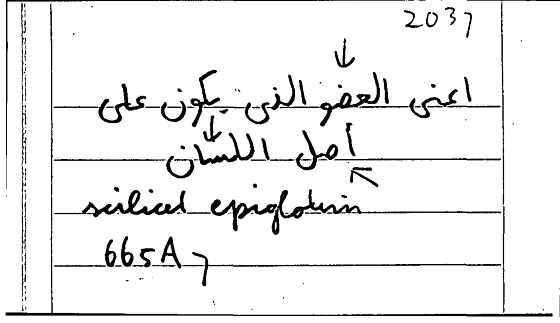 2037
اعنى العضو الذى يكون على
أصل اللسان
scilicet epiglotum
665A7